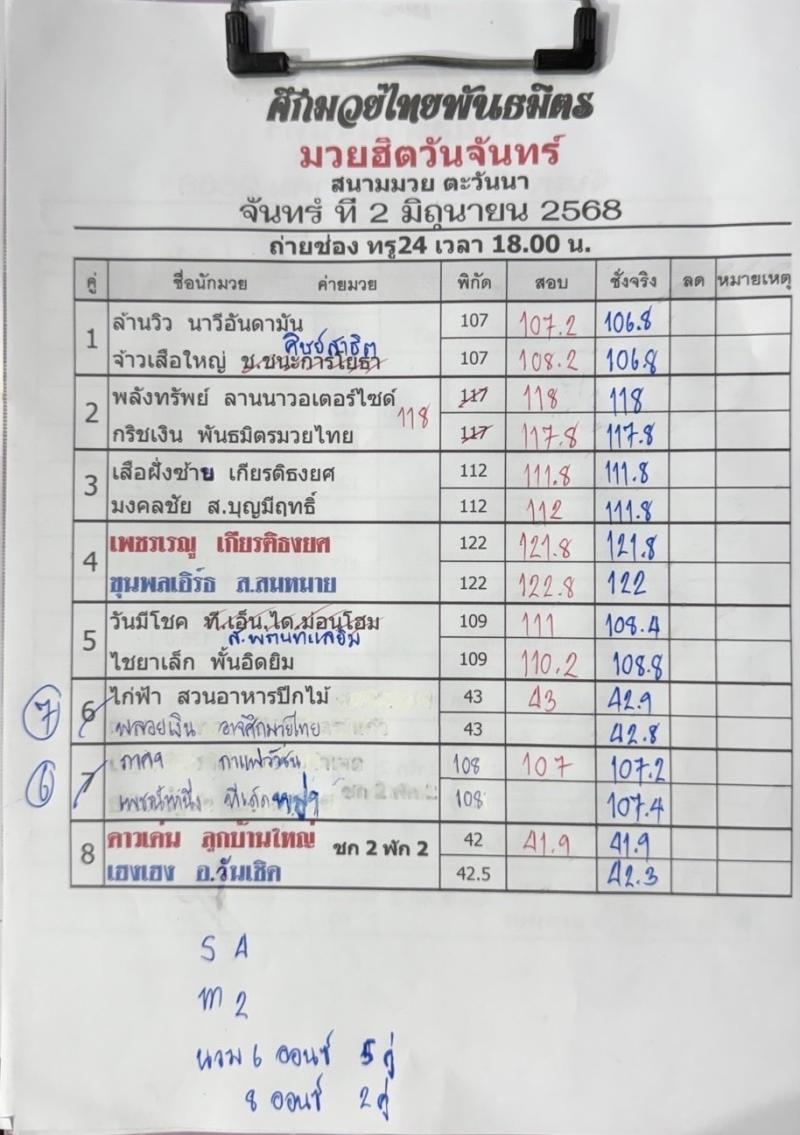 ศึกมวยไทยพันธมิตร
มวยฮิตวันจันทร์
สนามมวย ตะวันนา
จันทร์ ที่ 2 มิถุนายน 2568
ถ่ายช่อง ทรู24 เวลา 18.00 น.
คู่ ชื่อนักมวย ค่ายมวย พิกัด สอบ ชั่งจริง ลด หมายเหตุ
1 ล้านวิว นาวีอันดามัน 107 107.2 106.8
ศิษย์สาธิต
จ้าวเสือใหญ่ ช.ชนะการโยธา 107 108.2 106.8
2 พลังทรัพย์ ลานนาวอเตอร์ไซด์ 118 117 118 118
กริชเงิน พันธมิตรมวยไทย 117 117.8 117.8
3 เสือฝั่งซ้าย เกียรติธงยศ 112 111.8 111.8
มงคลชัย ส.บุญมีฤทธิ์ 112 112 111.8
4 เพชรเรณู เกียรติธงยศ 122 121.8 121.8
ขุนพลเอิร์ธ ส.สมหมาย 122 122.8 122
5 วันมีโชค ที.เอ็น.ได.ม่อนโฮม 109 111 108.4
ไชยาเล็ก พั้นอิดยิม 109 110.2 108.8
7 6 ไก่ฟ้า สวนอาหารปีกไม้ 43 43 42.9
พลอยเงิน 43 42.8
6 7 กาแฟวัวชน 108 107 107.2
108 107.4
8 ดาวเด่น ลูกบ้านใหญ่ ชก 2 พัก 2 42 41.9 41.9
เฮงเฮง อ.วันเชิด 42.5 42.3
S 4
m 2
นวม 6 ออนซ์ 5 คู่
8 ออนซ์ 2 คู่